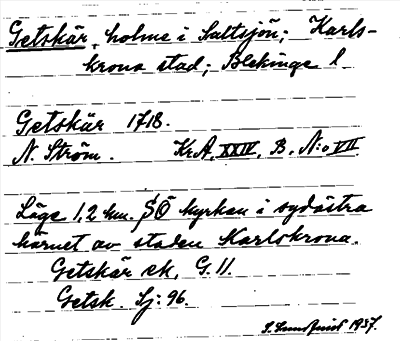 Getskär, holme i Saltsjön; Karls-
krona stad; Blekinge l.
Getskär 1718.
N. Ström. KrA, XXIV, B. N:o VII.
Läge 1,2 km. SÖ kyrkan i sydöstra
hörnet av staden Karlskrona.
Getskär ek. G. 11.
Getsk. Sj: 96.
1937.